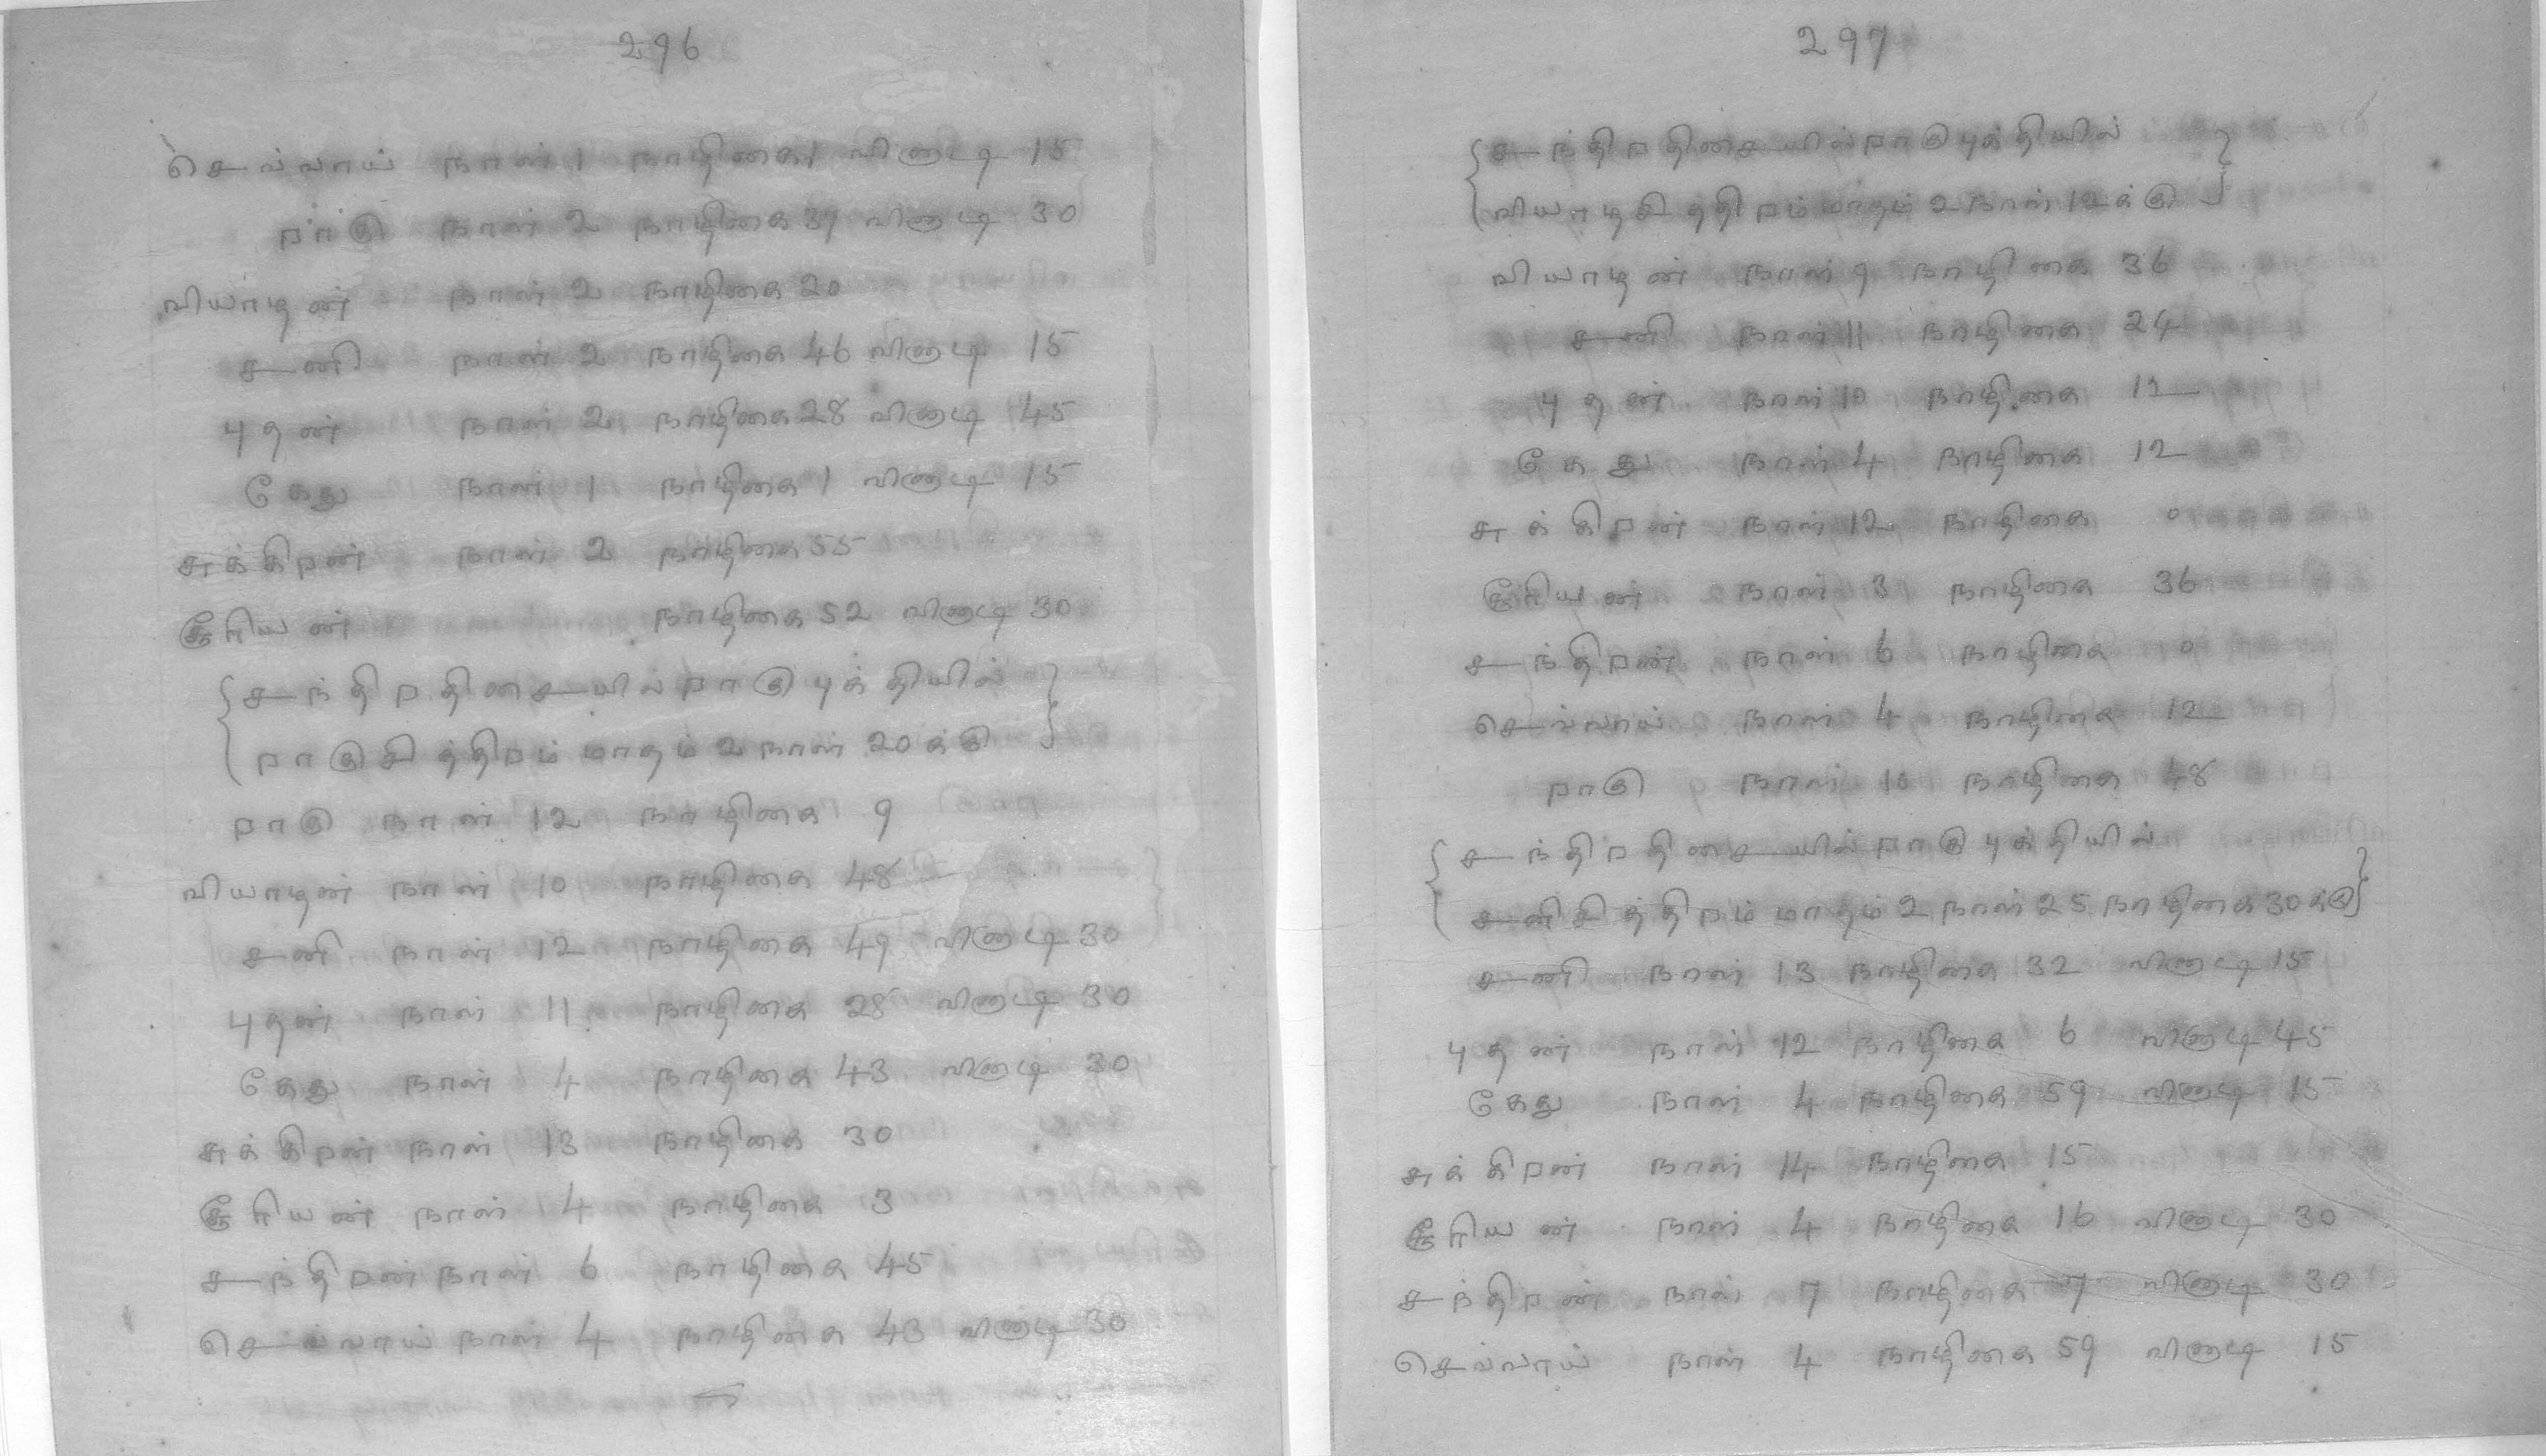 296
செவ்வாய் நாள் 1 நாழிகை 1 விநாடி 15
றாகு நாள் 2 நாழிகை 37 விநாடி 30
வியாழன் நாள் 2 நாழிகை 20
சனி நாள் 2 நாழிகை 46 விநாடி 15
புதன் நாள் 2 நாழிகை 28 விநாடி 45
கேது நாள் 1 நாழிகை 1 விநாடி 15
சுக்கிறன் நாள் 2 நாழிகை 55
சூரியன் நாழிகை 52 விநாடி 30
{சந்திறதிசையில் றாகு புக்தியில்}
{றாகு சித்திறம் மாதம் 2 நாள் 20 க்கு}
றாகு நாள் 12 நாழிகை 9
வியாழன் நாள் 10 நாழிகை 48
சனி நாள் 12 நாழிகை 49 விநாடி 30
புதன் நாள் 11 நாழிகை 28 விநாடி 30
கேது நாள் 4 நாழிகை 43 விநாடி 30
சுக்கிறன் நாள் 13 நாழிகை 30
சூரியன் நாள் 4 நாழிகை 3
சந்திறன் நாள் 6 நாழிகை 45
செவ்வாய் நாள் 4 நாழிகை 43 விநாடி 30
297
{சந்திறதிசையில் றாகு புக்தியில்}
{வியாழ சித்திறம் மாதம் 2 நாள் 12 க்கு}
வியாழன் நாள் 9 நாழிகை 36
சனி நாள் 11 நாழிகை 24
புதன் நாள் 10 நாழிகை 12
கேது நாள் 4 நாழிகை 12
சுக்கிறன் நாள் 12 நாழிகை 0
சூரியன் நாள் 3 நாழிகை 36
சந்திறன் நாள் 6 நாழிகை 0
செவ்வாய் நாள் 4 நாழிகை 12
றாகு நாள் 10 நாழிகை 48
{சந்திறதிசையில் றாகு புக்தியில்
சனி சித்திறம் மாதம் 2 நாள் 25 நாழிகை 30 க்கு}
சனி நாள் 13 நாழிகை 32 விநாடி 15
புதன் நாள் 12 நாழிகை 6 விநாடி 45
கேது நாள் 4 நாழிகை 59 விநாடி 15
சுக்கிறன் நாள் 14 நாழிகை 15
சூரியன் நாள் 4 நாழிகை 16 விநாடி 30
சந்திறன் நாள் 7 நாழிகை 7 விநாடி 30
செவ்வாய் நாள் 4 நாழிகை 59 விநாடி 15